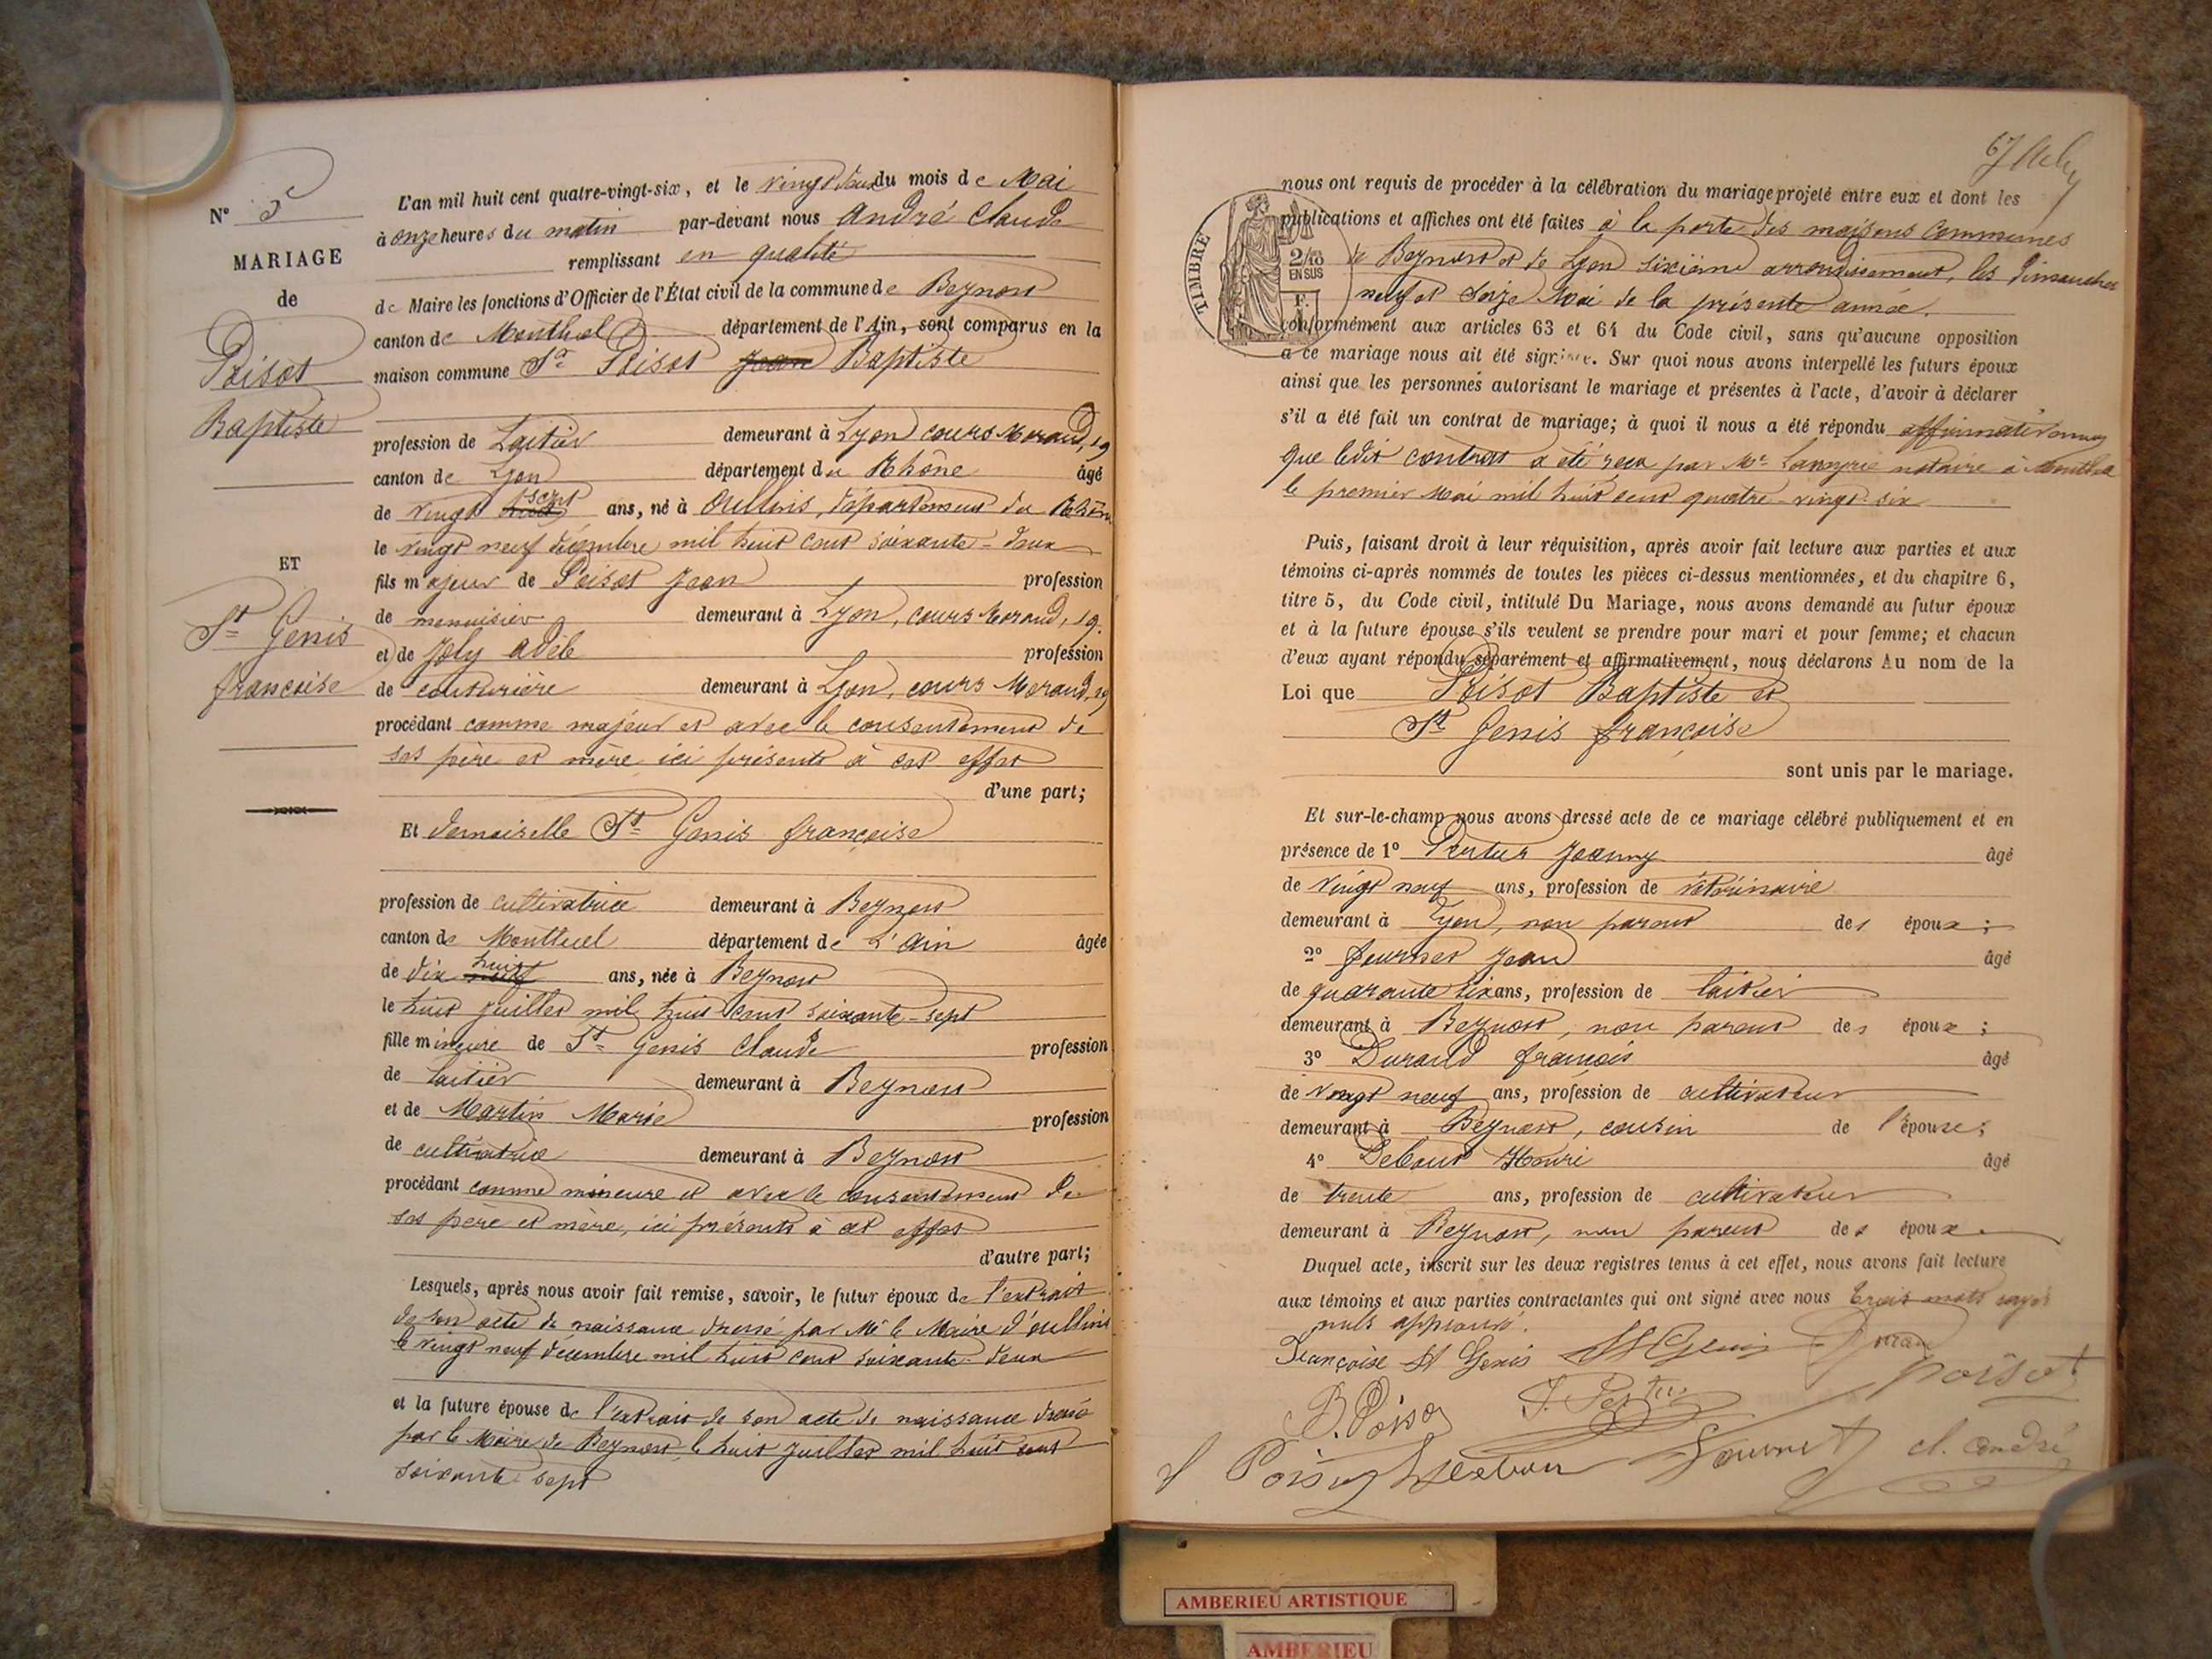 N° 5
MARIAGE
de
Poisot
Baptiste
ET
St Genis
françoise
L'an mil huit cent quatre-vingt-six, et le vingt deux du mois de Mai
à onze heures du matin par-devant nous André Claude
remplissant en qualité
de Maire les fonctions d'Officier de l'État civil de la commune de Beynost
canton de Montluel département de l'Ain, sont comparus en la
maison commune Sr Poisot Jean Baptiste
profession de Laitier demeurant à Lyon cours Morand, 19
canton de Lyon département du Rhône âgé
de vingt trois ans, né à Oullins, département du Rhône
le vingt neuf décembre mil huit cent soixante-deux
fils majeur de Poisot Jean profession
de menuisier demeurant à Lyon, cours Morand, 19.
et de Joly Adèle profession
de couturière demeurant à Lyon, cours Morand, 19
procédant comme majeur et avec le consentement de
ses père et mère ici présents à cet effet
d'une part;
Et demoiselle St Genis françoise
profession de cultivatrice demeurant à Beynost
canton de Montluel département de L'Ain âgée
de dix huit ans, née à Beynost
le huit juillet mil huit cent soixante-sept
fille mineure de St Genis Claude profession
de laitier demeurant à Beynost
et de Martin Marie profession
de cultivatrice demeurant à Beynost
procédant comme mineure et avec le consentement de
ses père et mère, ici présents à cet effet
d'autre part;
Lesquels, après nous avoir fait remise, savoir, le futur époux de l'extrait
de son acte de naissance dressé par Mr le Maire d'oullins
le vingt neuf décembre mil huit cent soixante-deux
et la future épouse de l'extrait de son acte de naissance dressé
par le Maire de Beynost le huit juillet mil huit cent
soixante sept
67
nous ont requis de procéder à la célébration du mariage projeté entre eux et dont les
publications et affiches ont été faites à la porte des maisons communes
de Beynost et de Lyon sixième arrondissement, les dimanches
neuf et seize Mai de la présente année.
TIMBRE
2/10
EN SUS
F.
conformément aux articles 63 et 64 du Code civil, sans qu'aucune opposition
à ce mariage nous ait été signifiée. Sur quoi nous avons interpellé les futurs époux
ainsi que les personnes autorisant le mariage et présentes à l'acte, d'avoir à déclarer
s'il a été fait un contrat de mariage; à quoi il nous a été répondu affirmativement
que ledit contrat a été reçu par Mr notaire à Montluel
le premier Mai mil huit cent quatre-vingt-six
Puis, faisant droit à leur réquisition, après avoir fait lecture aux parties et aux
témoins ci-après nommés de toutes les pièces ci-dessus mentionnées, et du chapitre 6,
titre 5, du Code civil, intitulé Du Mariage, nous avons demandé au futur époux
et à la future épouse s'ils veulent se prendre pour mari et pour femme; et chacun
d'eux ayant répondu séparément et affirmativement, nous déclarons Au nom de la
Loi que Poisot Baptiste et
St Genis françoise
sont unis par le mariage.
Et sur-le-champ nous avons dressé acte de ce mariage célébré publiquement et en
présence de 1° Joanny âgé
de vingt neuf ans, profession de vétérinaire
demeurant à Lyon, non parent des époux;
2° fournet Jean âgé
de quarante six ans, profession de laitier
demeurant à Beynost, non parent des époux;
3° Durand françois âgé
de vingt neuf ans, profession de cultivateur
demeurant à Beynost, cousin de l'épouse;
4° Henri âgé
de trente ans, profession de cultivateur
demeurant à Beynost, non parent des époux.
Duquel acte, inscrit sur les deux registres tenus à cet effet, nous avons fait lecture
aux témoins et aux parties contractantes qui ont signé avec nous trois mots rayés
nuls approuvé.
Françoise St Genis St Genis Durand
B. Poisot poisot
Poisot fournet cl. andré
AMBERIEU ARTISTIQUE
AMBERIEU